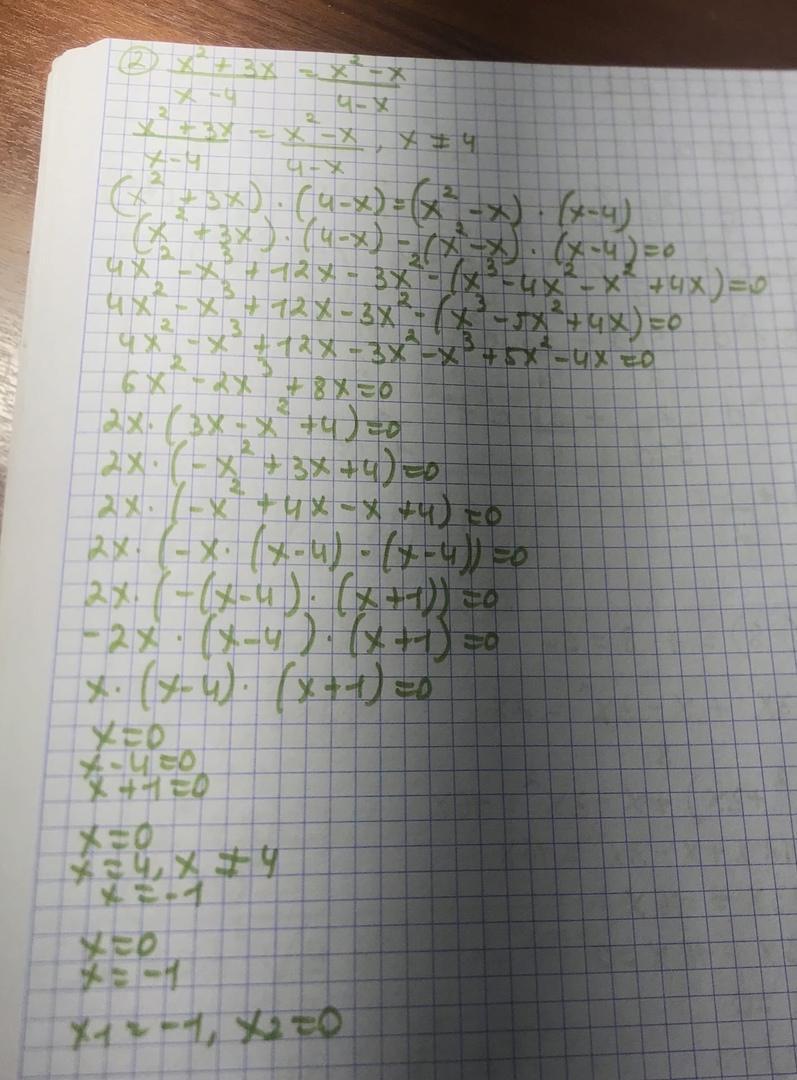 ② (x² + 3x)/(x - 4) = (x² - x)/(4 - x)
(x² + 3x)/(x - 4) = (x² - x)/(4 - x), x ≠ 4
(x² + 3x) · (4-x) = (x² - x) · (x-4)
(x² + 3x) · (4-x) - (x² - x) · (x-4) = 0
4x² - x³ + 12x - 3x² - (x³ - 4x² - x² + 4x) = 0
4x² - x³ + 12x - 3x² - (x³ - 5x² + 4x) = 0
4x² - x³ + 12x - 3x² - x³ + 5x² - 4x = 0
6x² - 2x³ + 8x = 0
2x · (3x - x² + 4) = 0
2x · (-x² + 3x + 4) = 0
2x · (-x² + 4x - x + 4) = 0
2x · (-x · (x-4) - (x-4)) = 0
2x · (-(x-4) · (x+1)) = 0
-2x · (x-4) · (x+1) = 0
x · (x-4) · (x+1) = 0
x = 0
x - 4 = 0
x + 1 = 0
x = 0
x = 4, x ≠ 4
x = -1
x = 0
x = -1
x₁ = -1, x₂ = 0